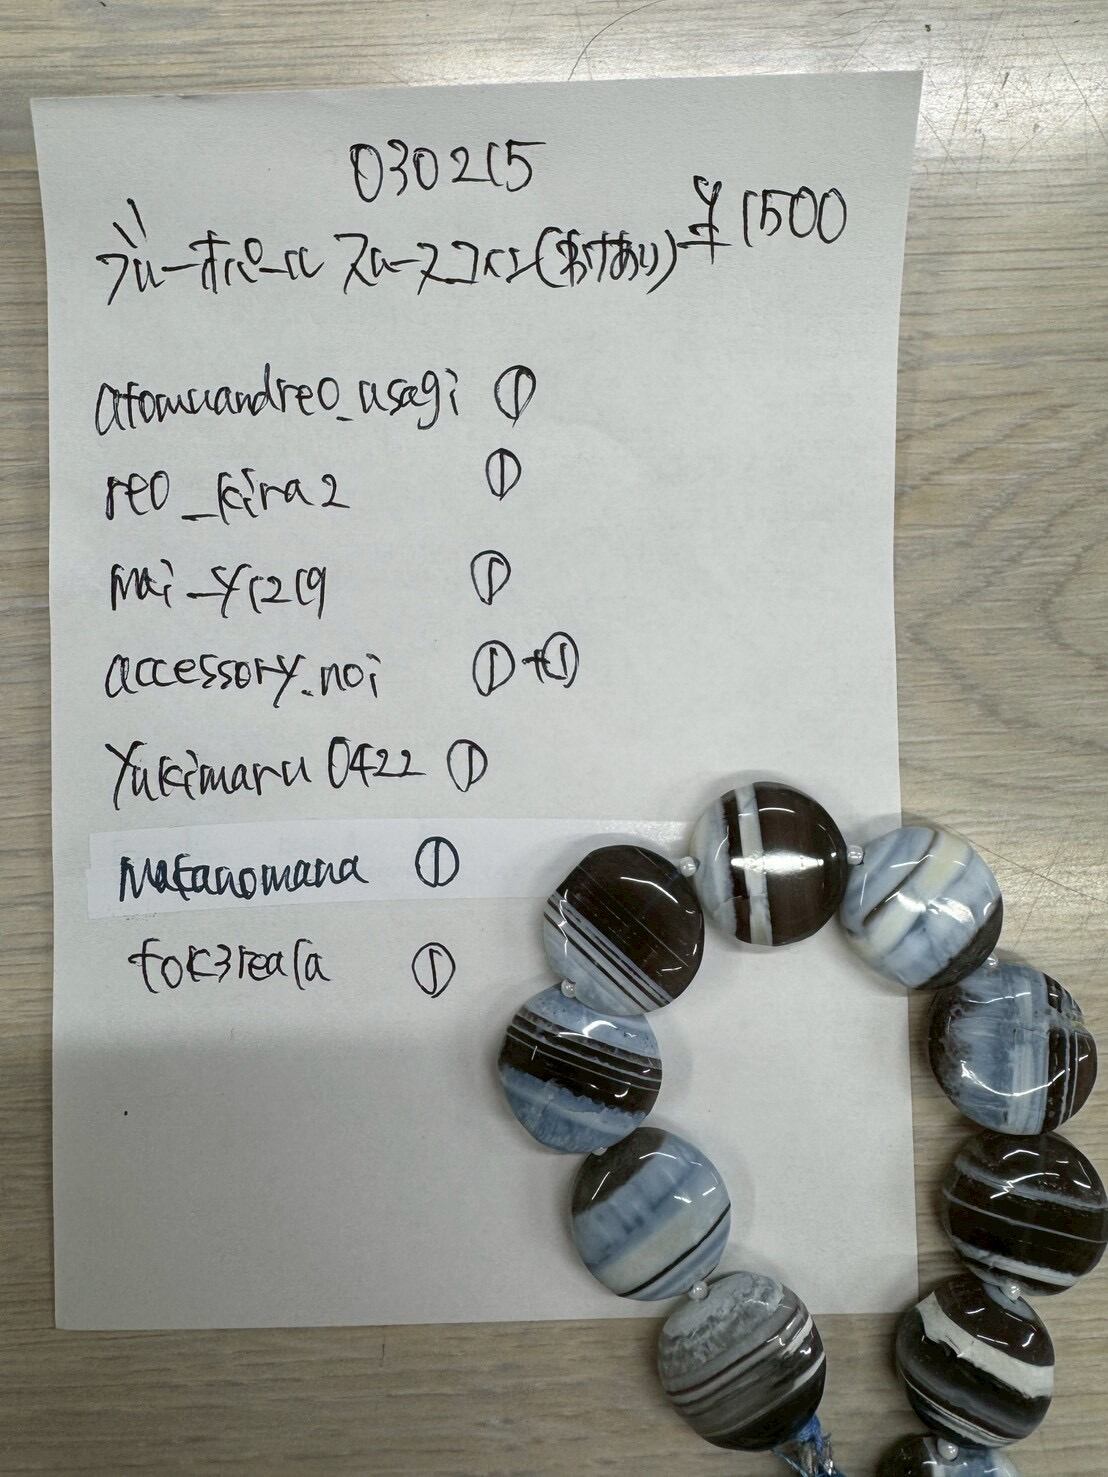 030215
ブルーオパール スルースコイン(わけあり) ¥1500
atomuandreo_usagi ①
reo_kira2 ①
mai_y1219 ①
accessory.noi ①+①
yukimaru0422 ①
matanomana ①
tok3reala ①